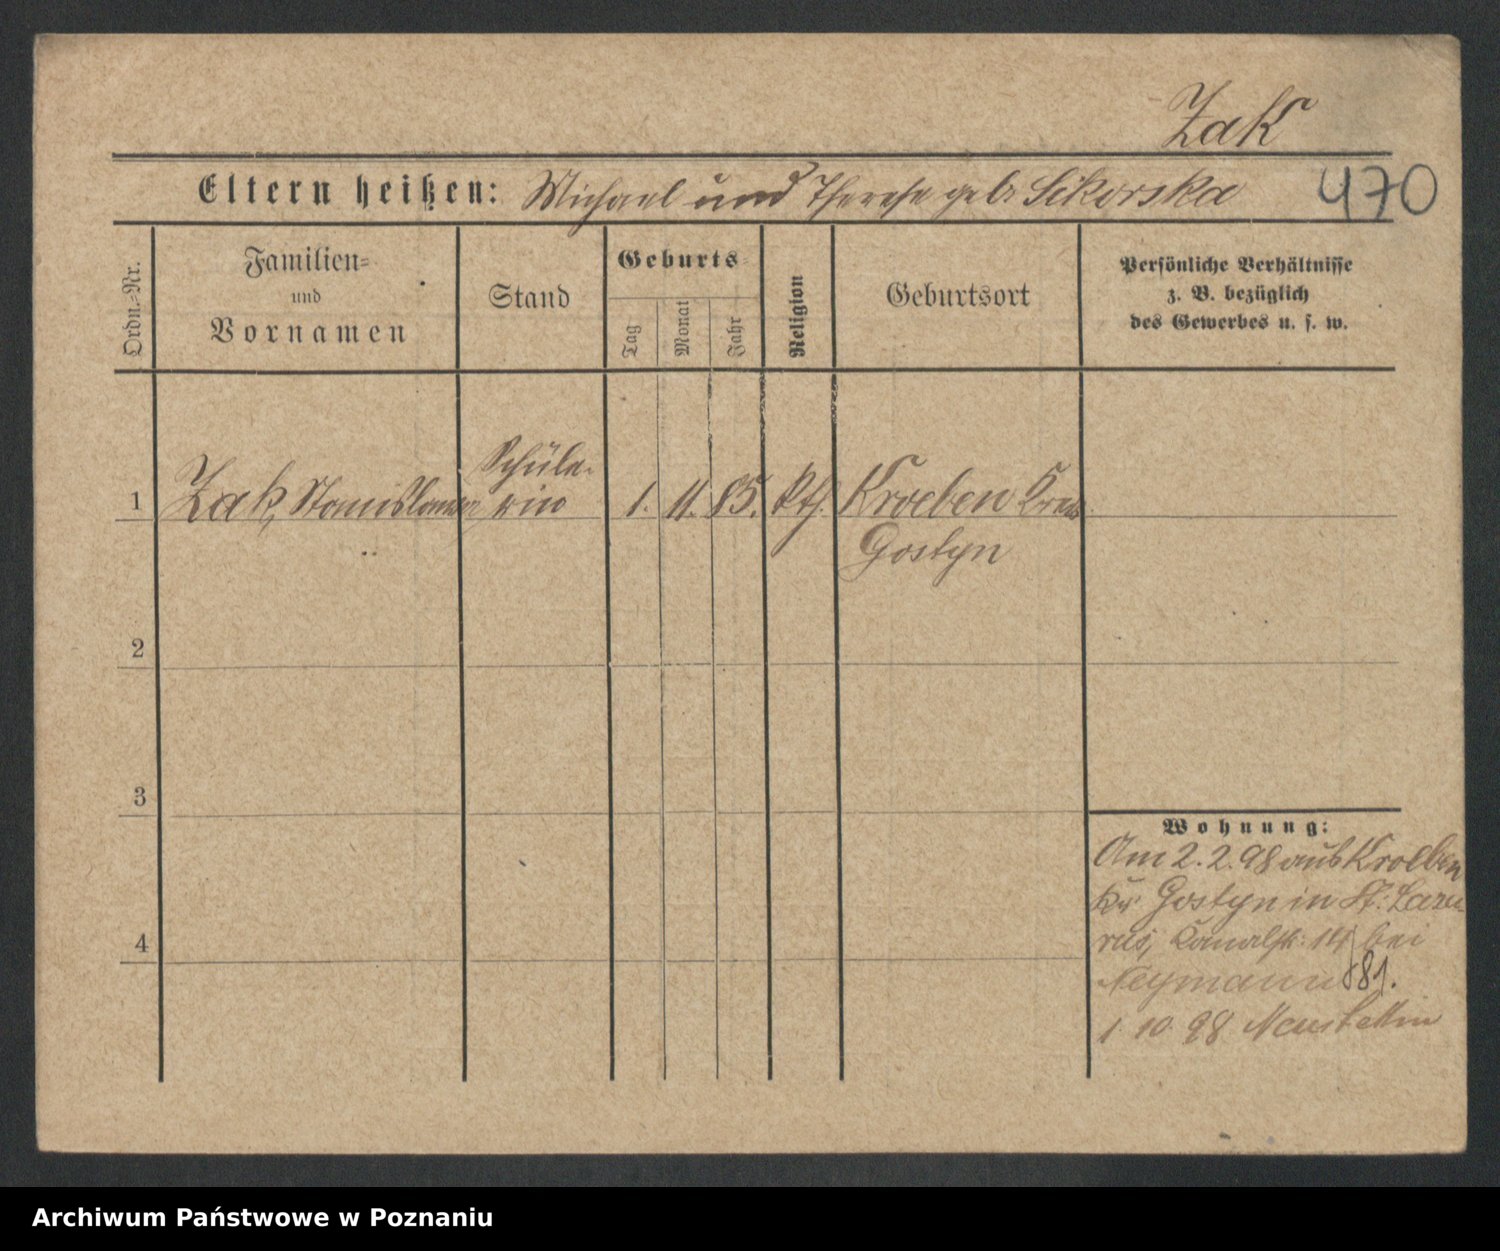 Zak
Eltern heißen: Michael und Therese geb. Sikorska
470
Ordn.=Nr.
Familien=
und
Vornamen
Stand
Geburts=
Tag
Monat
Jahr
Religion
Geburtsort
Persönliche Verhältnisse
z. B. bezüglich
des Gewerbes u. s. w.
1 Zak, Stanislawa
Schüle-
rin
1. 11. 85. kth. Kroeben Kreis
Gostyn
2
3
4
Wohnung:
Am 2. 2. 98 aus Kroeben
Kr. Gostyn in St. Laza
rus, Kanalstr. 14 bei
Neymann 81.
1. 10. 98 Neustettin
Archiwum Państwowe w Poznaniu